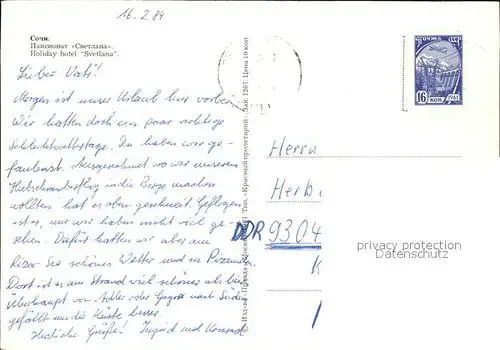 16.2.84
Сочи.
Пансионат «Светлана».
Holiday hotel "Svetlana".
Lieber Vati!
Morgen ist unser Urlaub hier vorbei.
Wir hatten doch ein paar richtige
Schlechtwettertage. Da haben wir ge-
faulenzt. Ausgerechnet wo wir unseren
Hubschrauberflug in die Berge machen
wollten hat es oben geschneit. Geflogen
ist er, nur wir haben nicht viel ge-
sehen. Dafür hatten wir aber am
Riza-See schönes Wetter und in Pizunda.
Dort ist es am Strand viel schöner als hier.
Überhaupt von Adler oder Gagra nach Süden
gefällt uns die Küste besser.
Herzliche Grüße! Ingrid und Konrad
Тип. «Красный пролетарий». Зак. 1207. Цена 10 коп
ПОЧТА СССР
16 КОП
1961
Herrn
Herb
DDR 9304
K
privacy protection
Datenschutz